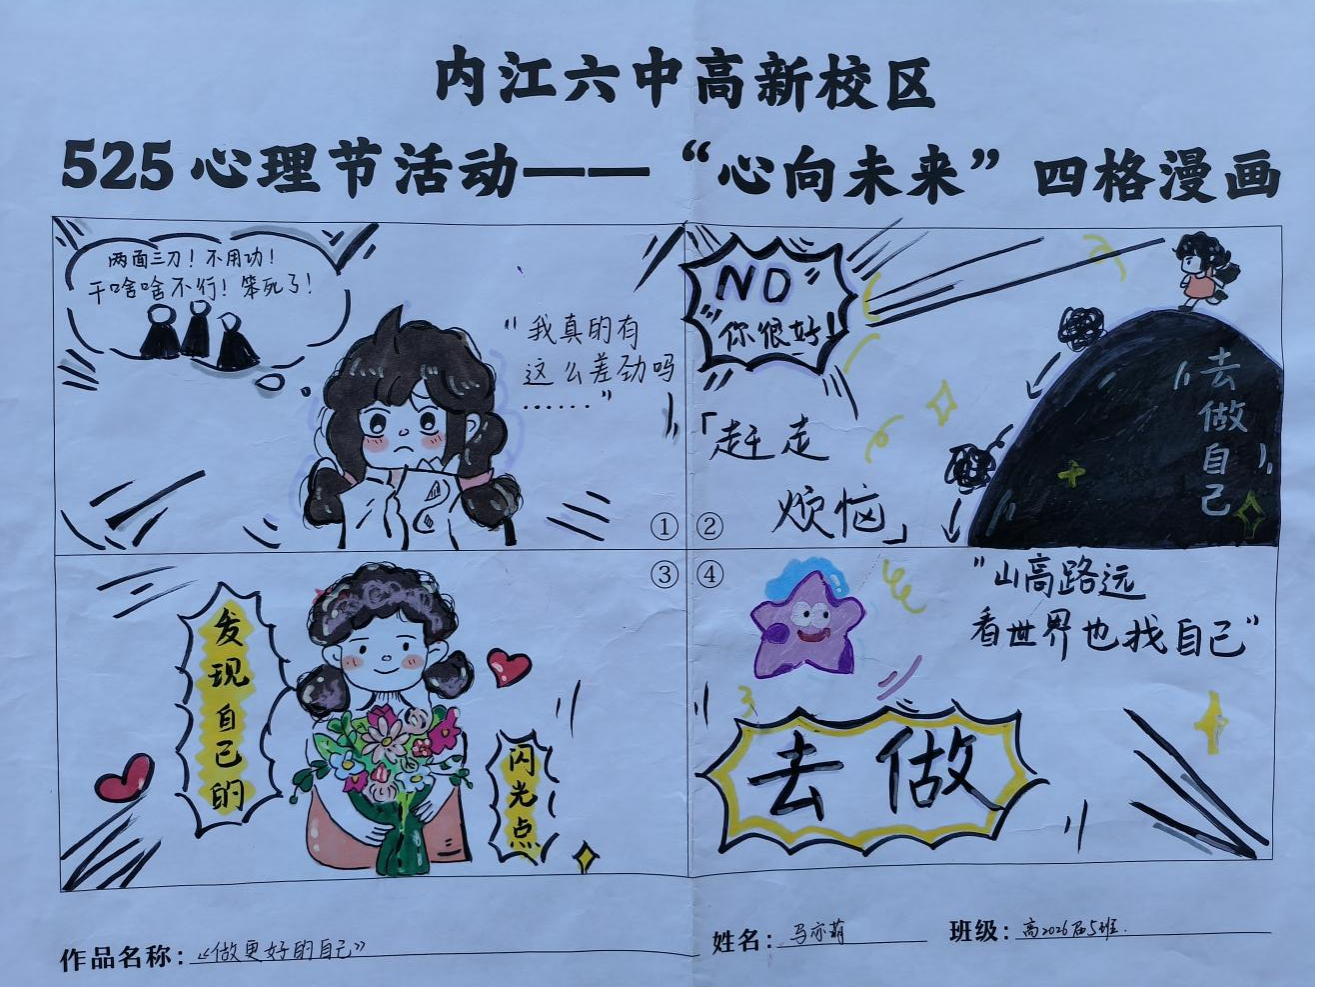 内江六中高新校区
525心理节活动——“心向未来”四格漫画
两面三刀！不用功！
干啥啥不行！笨死了！
"我真的有
这么差劲吗
……"
①
NO
"你很好！
「赶走
烦恼」
去做自己
②
发现自己的
闪光点
③
④
"山高路远
看世界也找自己"
去做
作品名称：《做更好的自己》
姓名：马亦萌
班级：高2026届5班.